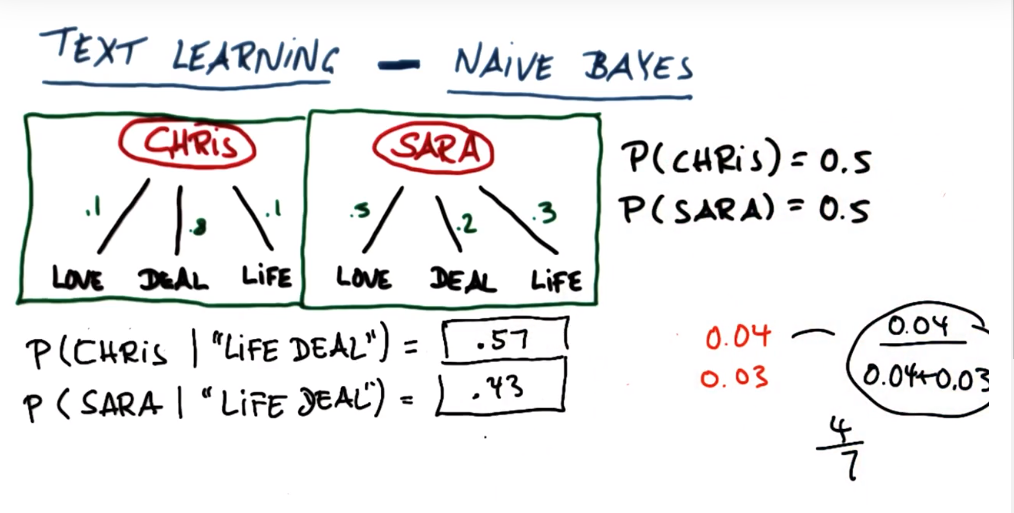 TEXT LEARNING - NAIVE BAYES
CHRIS
.1 .8 .1
LOVE DEAL LIFE
SARA
.5 .2 .3
LOVE DEAL LIFE
P(CHRIS) = 0.5
P(SARA) = 0.5
P(CHRIS | "LIFE DEAL") = .57
P(SARA | "LIFE DEAL") = .43
0.04
0.03
0.04
0.04+0.03
4
7